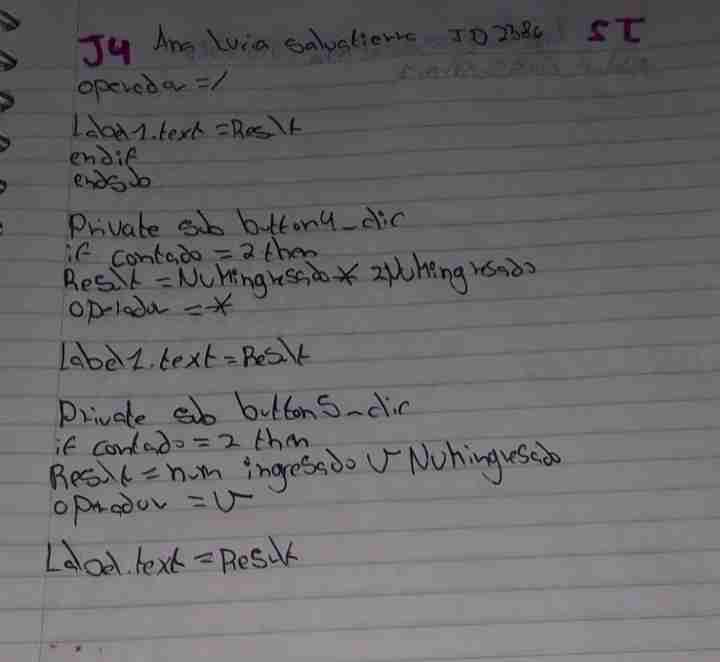 J4 Ana Lucia Salvatierra JD 2386 SI
operador =/
Label1.text = Result
endif
endsub
Private sub button4_clic
if contado = 2 then
Result = Numingresado * 2Numingresado
operador = *
Label1.text = Result
Private sub button5_clic
if contado = 2 then
Result = num ingresado √ Numingresado
oprador = √
Label.text = Result